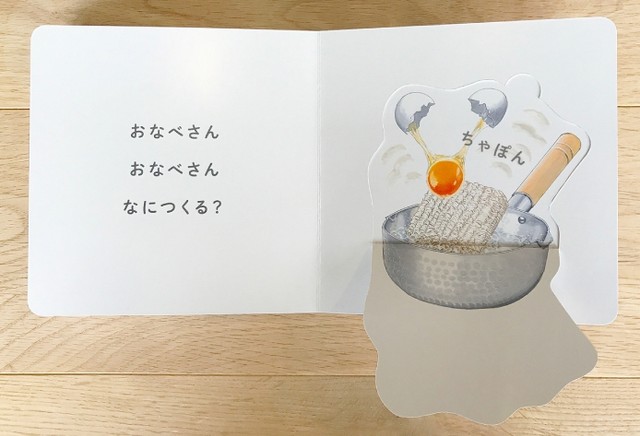 おなべさん
おなべさん
なにつくる？
ちゃぽん